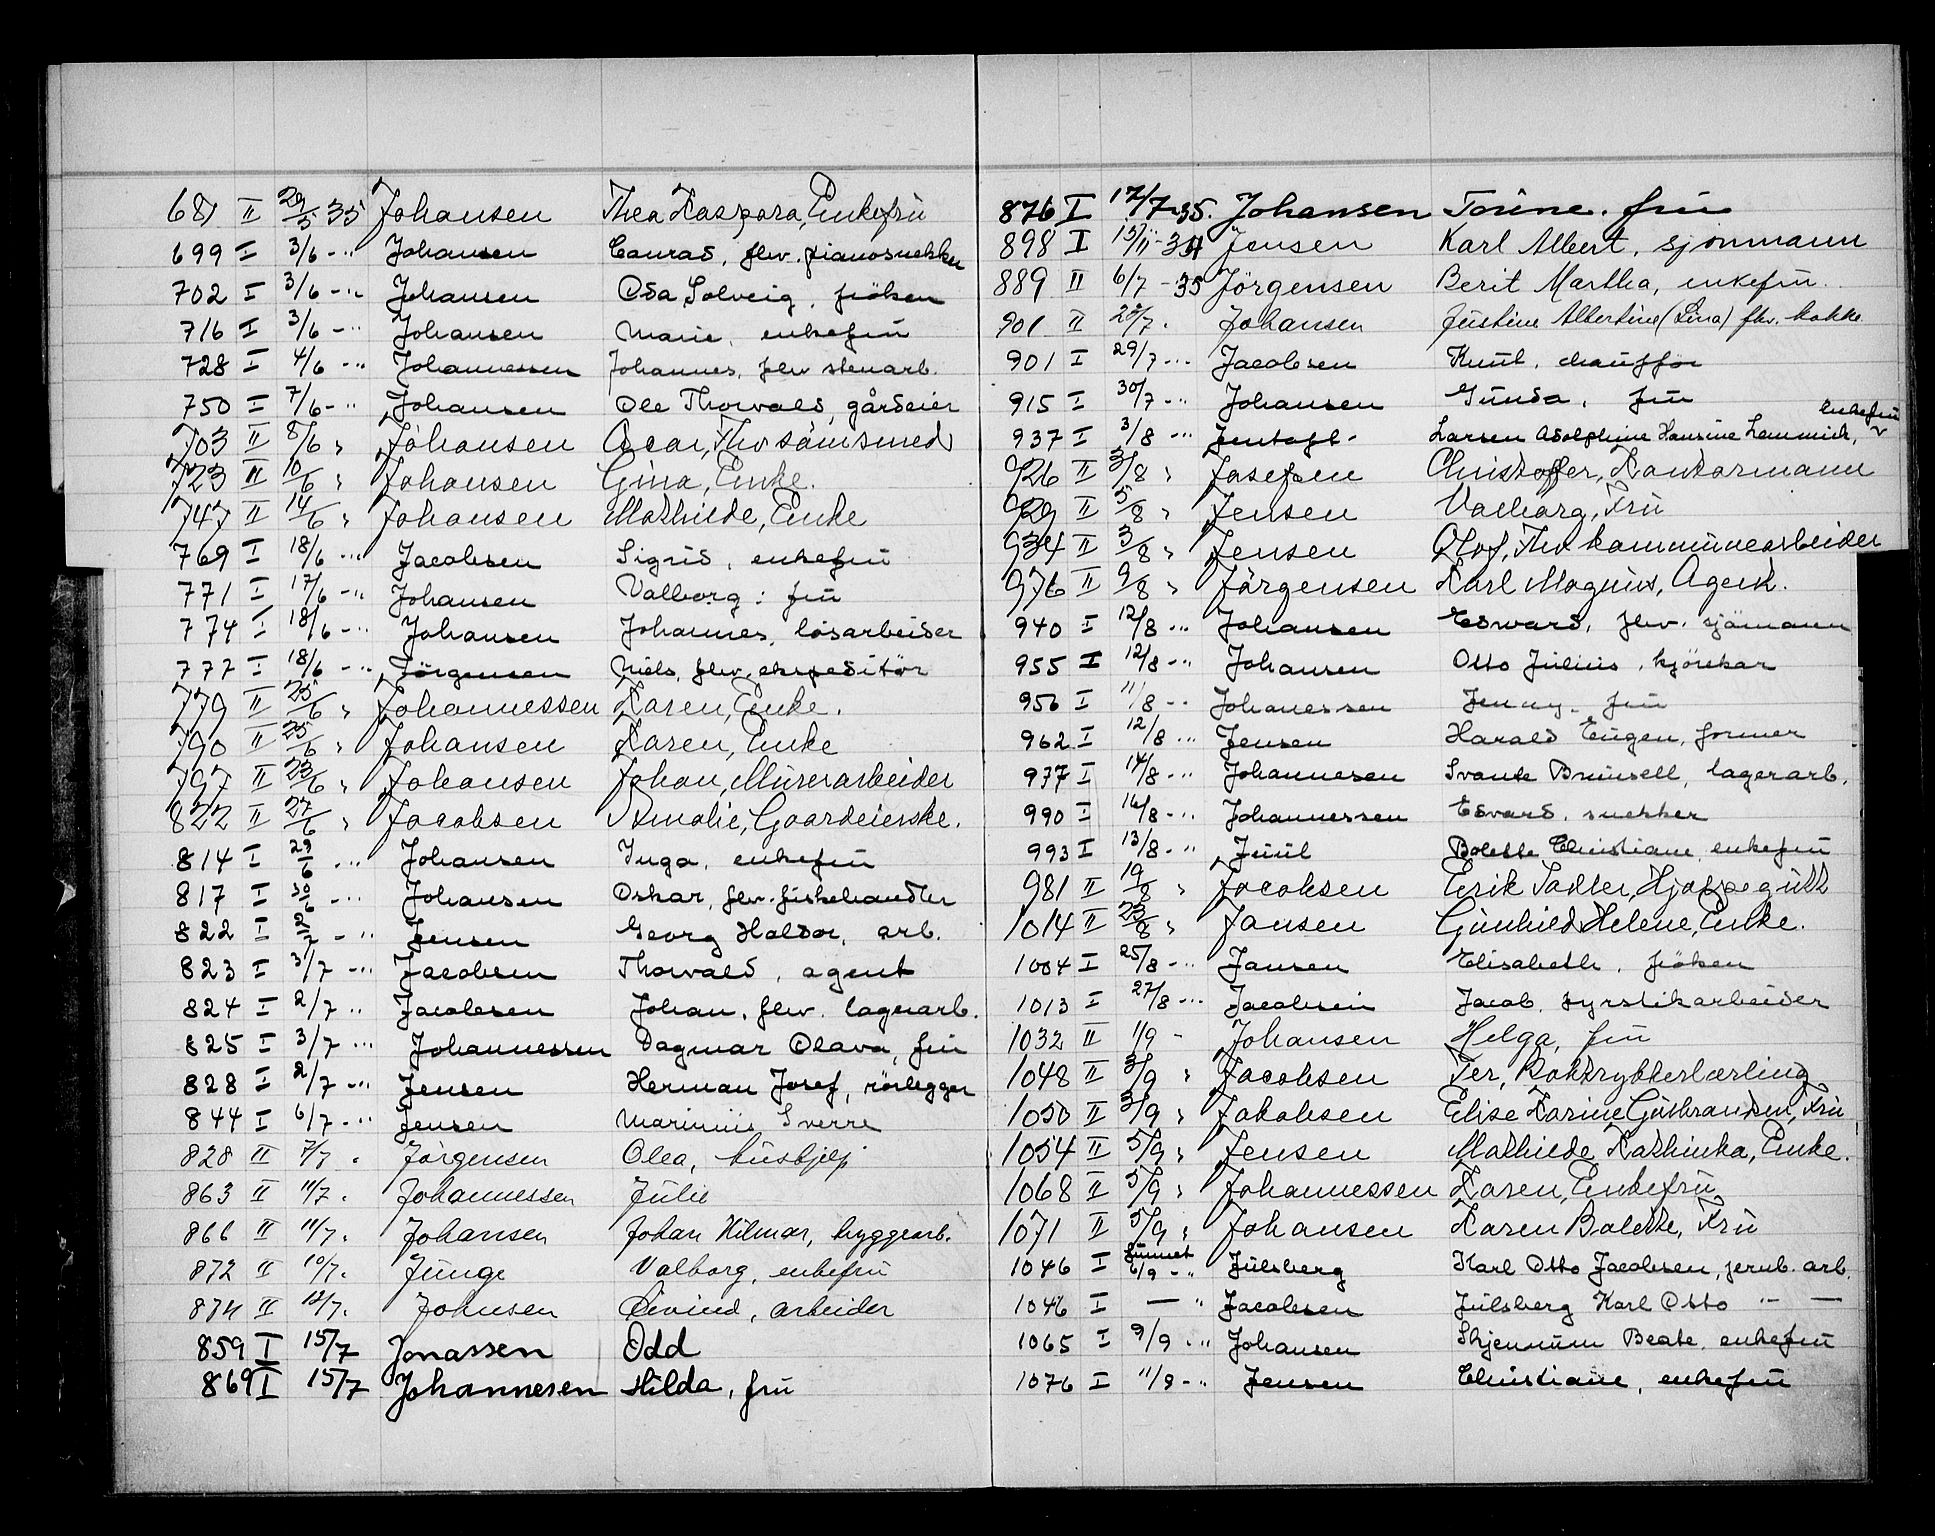 681 II 29/5 35 Johansen Thea Kaspara, Enkefru
699 I 3/6 - " Johansen Conrad, fhv. pianosnekker
702 I 3/6 - " Johansen Osa Solveig, fröken
716 I 3/6 - " Johansen Marie, enkefru
728 I 4/6 - " Johannessen Johannes, fhv stenarb.
750 I 7/6 - " Johansen Ole Thorvald, gårdeier
703 II 8/6 " Johansen Thv
723 II 10/6 " Johansen Gina, Enke.
747 II 14/6 " Johansen Mathilde, Enke
769 I 18/6 - " Jacobsen Sigrid, enkefru
771 I 17/6 - " Johansen Valborg: fru
774 I 18/6 - " Johansen Johannes, løsarbeider
777 I 18/6 - " Jörgensen Niels, fhv. ekspeditör
779 II 25/6 " Johannessen Karen, Enke.
790 II 25/6 " Johansen Karen, Enke
797 II 23/6 " Johansen Johan, Murerarbeider
822 II 27/6 " Jacobsen Amalie, Gaardeierske.
814 I 29/6 - " Johansen Inga, enkefru
817 I 30/6 - " Johansen Oskar, fhv. fiskehandler
822 I 2/7 - " Jensen Georg Haldor, arb.
823 I 3/7 - " Jacobsen Thorvald, agent
824 I 2/7 " Jacobsen Johan, fhv. lagerarb.
825 I 3/7 - " Johannessen Dagmar Olava, fru
828 I 2/7 - " Jensen Herman Josef, rørlegger
844 I 6/7 - " Jensen Marinius Sverre
828 II 7/7 " Jörgensen Olea, husbjelp
863 II 11/7. Johannessen Julie
866 II 11/7. Johansen Johan Hilmar, byggearb.
872 II 10/7. Junge Valborg, enkefru
874 II 12/7. Johnsen Øivind, arbeider
859 I 15/7 Jonassen Odd
869 I 15/7 Johannesen Hilda, fru
876 I 17/7-35. Johansen Torine. fru
898 I 15/11-34 Jensen Karl Albert, sjömann
889 II 6/7 - 35 Jörgensen Berit Martha, enkefru.
901 II 20/7. Johansen Justine Albertine (Lina) fhv. kokke
901 I 29/7 - " Jacobsen Knut, chauffør
915 I 30/7 - " Johansen Gunda, fru
937 I 3/8 - " Jentoft - Larsen Adolphine Hansine Lemmich, enkefru
926 II 3/8 " Josefsen Christoffer, Kontormann
929 II 5/8 " Jensen Valborg, Fru
934 II 3/8 " Jensen Olof, Thv. kommunearbeider
976 II 9/8 " Jørgensen Karl Magnus, Agent.
940 I 12/8 - " Johansen Edward, fhv. sjömann
955 I 12/8 - " Johansen Otto Julius, kjörekar
956 I 11/8 - " Johanessen Jenny, fru
962 I 12/8 - " Jensen Harald Eugen, former
977 I 14/8 - " Johannesen Svante Brunsell, lagerarb.
990 I 16/8 - " Johannessen Edvard, snekker
993 I 13/8 - " Juul Bolette Christiane, enkefru
981 II 19/8 " Jacobsen Erik Sadler,
1014 II 23/8 " Jansen Gunhild Helene, Enke.
1004 I 25/8 - " Jansen Elisabeth, fröken
1013 I 27/8 - " Jacobsen Jacob, fyrstikarbeider
1032 II 1/9 - Johansen Helga, fru
1048 II 3/9 " Jacobsen Per, Boktrykkerlærling
1050 II 3/9 " Jakobsen Elise Karine Gulbrandsen, Fru
1054 II 5/9 " Jensen Mathilde Kathinka, Enke.
1068 II 5/9 " Johannessen Karen, Enkefru
1071 II 5/9 " Johansen Karen Bolette, Fru
1046 I funnet 6/9 - " Julsberg Karl Otto Jacobsen, jernb. arb.
1046 I — " Jacobsen Julsberg Karl Otto - " —
1065 I 9/9 - " Johansen Skjennum Beate, enkefru
1076 I 11/9 - " Jensen Christiane, enkefru